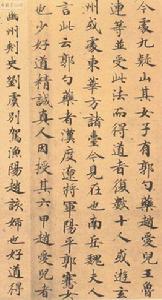 今處九疑山其女子有郭勺藥趙愛兒王魯
連等並受此法而得道者復數十人或遊玄
州或處東華方諸臺今見在也南岳魏夫人
言此云郭勺藥者漢度遼將軍陽平郭騫女
也少好道精誠真人因授其六甲趙愛兒者
幽州刺史劉虞別駕漁陽趙該婦也好道得